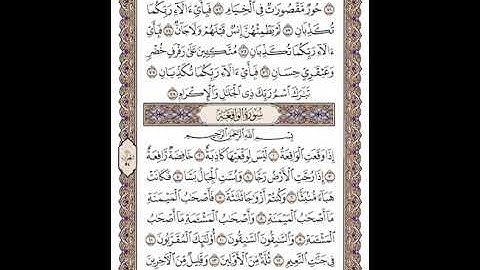 حُورٌ مَّقْصُورَاتٌ فِي ٱلْخِيَامِ ٧٢ فَبِأَىِّ ءَالَآءِ رَبِّكُمَا
تُكَذِّبَانِ ٧٣ لَمْ يَطْمِثْهُنَّ إِنسٌ قَبْلَهُمْ وَلَا جَآنٌّ ٧٤ فَبِأَىِّ
ءَالَآءِ رَبِّكُمَا تُكَذِّبَانِ ٧٥ مُتَّكِـِٔينَ عَلَىٰ رَفْرَفٍ خُضْرٍ
وَعَبْقَرِىٍّ حِسَانٍ ٧٦ فَبِأَىِّ ءَالَآءِ رَبِّكُمَا تُكَذِّبَانِ ٧٧
تَبَٰرَكَ ٱسْمُ رَبِّكَ ذِى ٱلْجَلَٰلِ وَٱلْإِكْرَامِ ٧٨
سُورَةُ الوَاقِعَةِ
بِسْمِ ٱللَّهِ ٱلرَّحْمَٰنِ ٱلرَّحِيمِ
إِذَا وَقَعَتِ ٱلْوَاقِعَةُ ١ لَيْسَ لِوَقْعَتِهَا كَاذِبَةٌ ٢ خَافِضَةٌ رَّافِعَةٌ
٣ إِذَا رُجَّتِ ٱلْأَرْضُ رَجًّا ٤ وَبُسَّتِ ٱلْجِبَالُ بَسًّا ٥ فَكَانَتْ
هَبَآءً مُّنۢبَثًّا ٦ وَكُنتُمْ أَزْوَٰجًا ثَلَٰثَةً ٧ فَأَصْحَٰبُ ٱلْمَيْمَنَةِ
مَآ أَصْحَٰبُ ٱلْمَيْمَنَةِ ٨ وَأَصْحَٰبُ ٱلْمَشْـَٔمَةِ مَآ أَصْحَٰبُ
ٱلْمَشْـَٔمَةِ ٩ وَٱلسَّٰبِقُونَ ٱلسَّٰبِقُونَ ١٠ أُو۟لَٰٓئِكَ ٱلْمُقَرَّبُونَ ١١
فِى جَنَّٰتِ ٱلنَّعِيمِ ١٢ ثُلَّةٌ مِّنَ ٱلْأَوَّلِينَ ١٣ وَقَلِيلٌ مِّنَ ٱلْءَاخِرِينَ